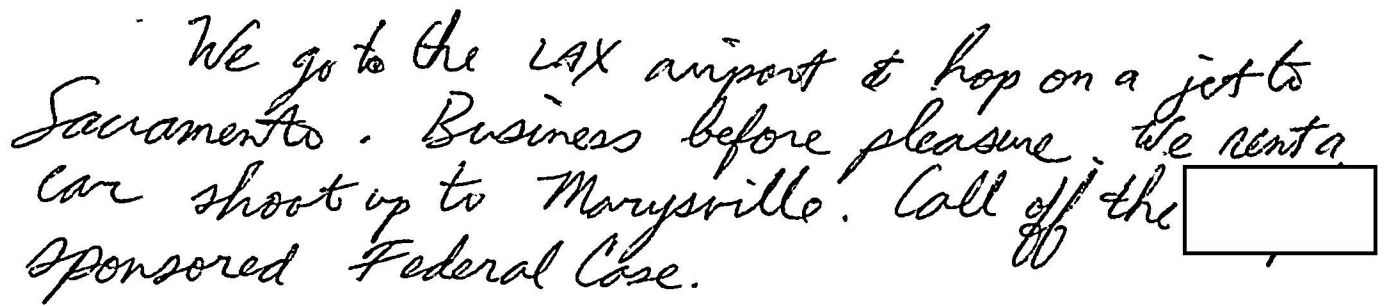 We go to the LAX airport & hop on a jet to
Sacramento. Business before pleasure. We rent a
car shoot up to Marysville. Call off the
sponsored Federal Case.